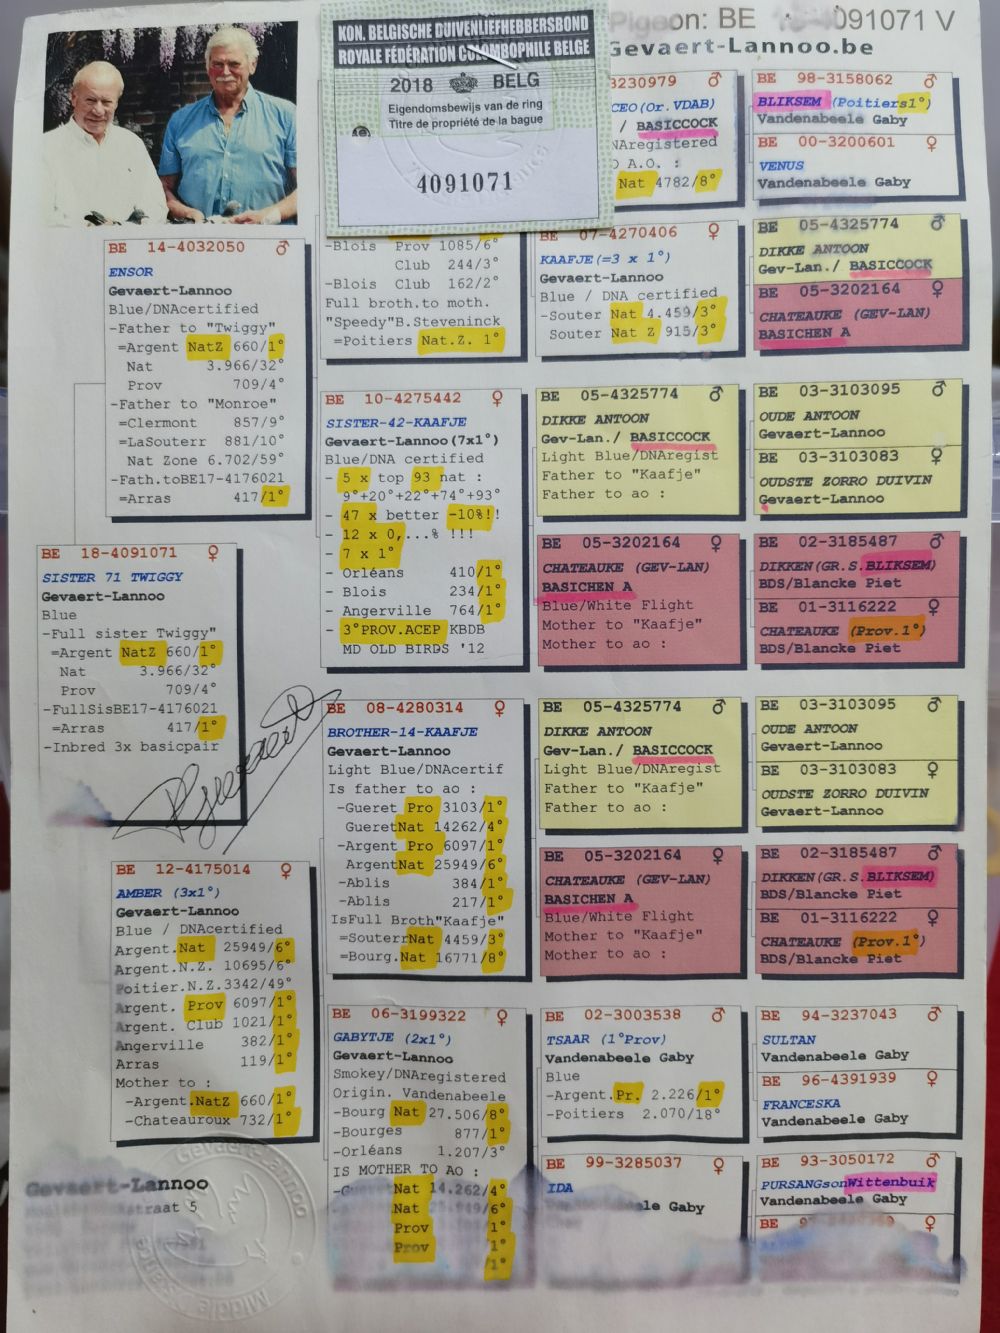 Pigeon: BE 4091071 V
Gevaert-Lannoo.be
KON. BELGISCHE DUIVENLIEFHEBBERSBOND
ROYALE FÉDÉRATION COLOMBOPHILE BELGE
2018 BELG
Eigendomsbewijs van de ring
Titre de propriété de la bague
4091071
BE 14-4032050 ♂
ENSOR
Gevaert-Lannoo
Blue/DNAcertified
-Father to "Twiggy"
=Argent NatZ 660/1°
Nat 3.966/32°
Prov 709/4°
-Father to "Monroe"
=Clermont 857/9°
=LaSouterr 881/10°
Nat Zone 6.702/59°
-Fath.toBE17-4176021
=Arras 417/1°
BE 18-4091071 ♀
SISTER 71 TWIGGY
Gevaert-Lannoo
Blue
-Full sister Twiggy"
=Argent NatZ 660/1°
Nat 3.966/32°
Prov 709/4°
-FullSisBE17-4176021
=Arras 417/1°
-Inbred 3x basicpair
BE 12-4175014 ♀
AMBER (3x1°)
Gevaert-Lannoo
Blue / DNAcertified
Argent.Nat 25949/6°
Argent.N.Z. 10695/6°
Poitier.N.Z.3342/49°
Argent. Prov 6097/1°
Argent. Club 1021/1°
Angerville 382/1°
Arras 119/1°
Mother to :
-Argent.NatZ 660/1°
-Chateauroux 732/1°
Gevaert-Lannoo
straat 5
Gevaert-Lannoo
Middle Distance
-Blois Prov 1085/6°
Club 244/3°
-Blois Club 162/2°
Full broth.to moth.
"Speedy"B.Steveninck
=Poitiers Nat.Z. 1°
BE 10-4275442 ♀
SISTER-42-KAAFJE
Gevaert-Lannoo(7x1°)
Blue/DNA certified
- 5 x top 93 nat :
9°+20°+22°+74°+93°
- 47 x better -10%!!
- 12 x 0,...% !!!
- 7 x 1°
- Orléans 410/1°
- Blois 234/1°
- Angerville 764/1°
- 3°PROV.ACEP KBDB
MD OLD BIRDS '12
BE 08-4280314 ♀
BROTHER-14-KAAFJE
Gevaert-Lannoo
Light Blue/DNAcertif
Is father to ao :
-Gueret Pro 3103/1°
GueretNat 14262/4°
-Argent Pro 6097/1°
ArgentNat 25949/6°
-Ablis 384/1°
-Ablis 217/1°
IsFull Broth"Kaafje"
=SouterrNat 4459/3°
=Bourg.Nat 16771/8°
BE 06-3199322 ♀
GABYTJE (2x1°)
Gevaert-Lannoo
Smokey/DNAregistered
Origin. Vandenabeele
-Bourg Nat 27.506/8°
-Bourges 877/1°
-Orléans 1.207/3°
IS MOTHER TO AO :
Nat 14.262/4°
Nat 6°
Prov 1°
Prov 1°
/1°
3230979 ♂
CEO(Or.VDAB)
/ BASICCOCK
NAregistered
A.O. :
Nat 4782/8°
BE 07-4270406 ♀
KAAFJE(=3 x 1°)
Gevaert-Lannoo
Blue / DNA certified
-Souter Nat 4.459/3°
Souter Nat Z 915/3°
BE 05-4325774 ♂
DIKKE ANTOON
Gev-Lan./ BASICCOCK
Light Blue/DNAregist
Father to "Kaafje"
Father to ao :
BE 05-3202164 ♀
CHATEAUKE (GEV-LAN)
BASICHEN A
Blue/White Flight
Mother to "Kaafje"
Mother to ao :
BE 05-4325774 ♂
DIKKE ANTOON
Gev-Lan./ BASICCOCK
Light Blue/DNAregist
Father to "Kaafje"
Father to ao :
BE 05-3202164 ♀
CHATEAUKE (GEV-LAN)
BASICHEN A
Blue/White Flight
Mother to "Kaafje"
Mother to ao :
BE 02-3003538 ♂
TSAAR (1°Prov)
Vandenabeele Gaby
Blue
-Argent.Pr. 2.226/1°
-Poitiers 2.070/18°
BE 99-3285037 ♀
IDA
le Gaby
BE 98-3158062 ♂
BLIKSEM (Poitiers1°)
Vandenabeele Gaby
BE 00-3200601 ♀
VENUS
Vandenabeele Gaby
BE 05-4325774 ♂
DIKKE ANTOON
Gev-Lan./ BASICCOCK
BE 05-3202164 ♀
CHATEAUKE (GEV-LAN)
BASICHEN A
BE 03-3103095 ♂
OUDE ANTOON
Gevaert-Lannoo
BE 03-3103083 ♀
OUDSTE ZORRO DUIVIN
Gevaert-Lannoo
BE 02-3185487 ♂
DIKKEN(GR.S.BLIKSEM)
BDS/Blancke Piet
BE 01-3116222 ♀
CHATEAUKE (Prov.1°)
BDS/Blancke Piet
BE 03-3103095 ♂
OUDE ANTOON
Gevaert-Lannoo
BE 03-3103083 ♀
OUDSTE ZORRO DUIVIN
Gevaert-Lannoo
BE 02-3185487 ♂
DIKKEN(GR.S.BLIKSEM)
BDS/Blancke Piet
BE 01-3116222 ♀
CHATEAUKE (Prov.1°)
BDS/Blancke Piet
BE 94-3237043 ♂
SULTAN
Vandenabeele Gaby
BE 96-4391939 ♀
FRANCESKA
Vandenabeele Gaby
BE 93-3050172 ♂
PURSANGsonWittenbuik
Vandenabeele Gaby
BE ♀